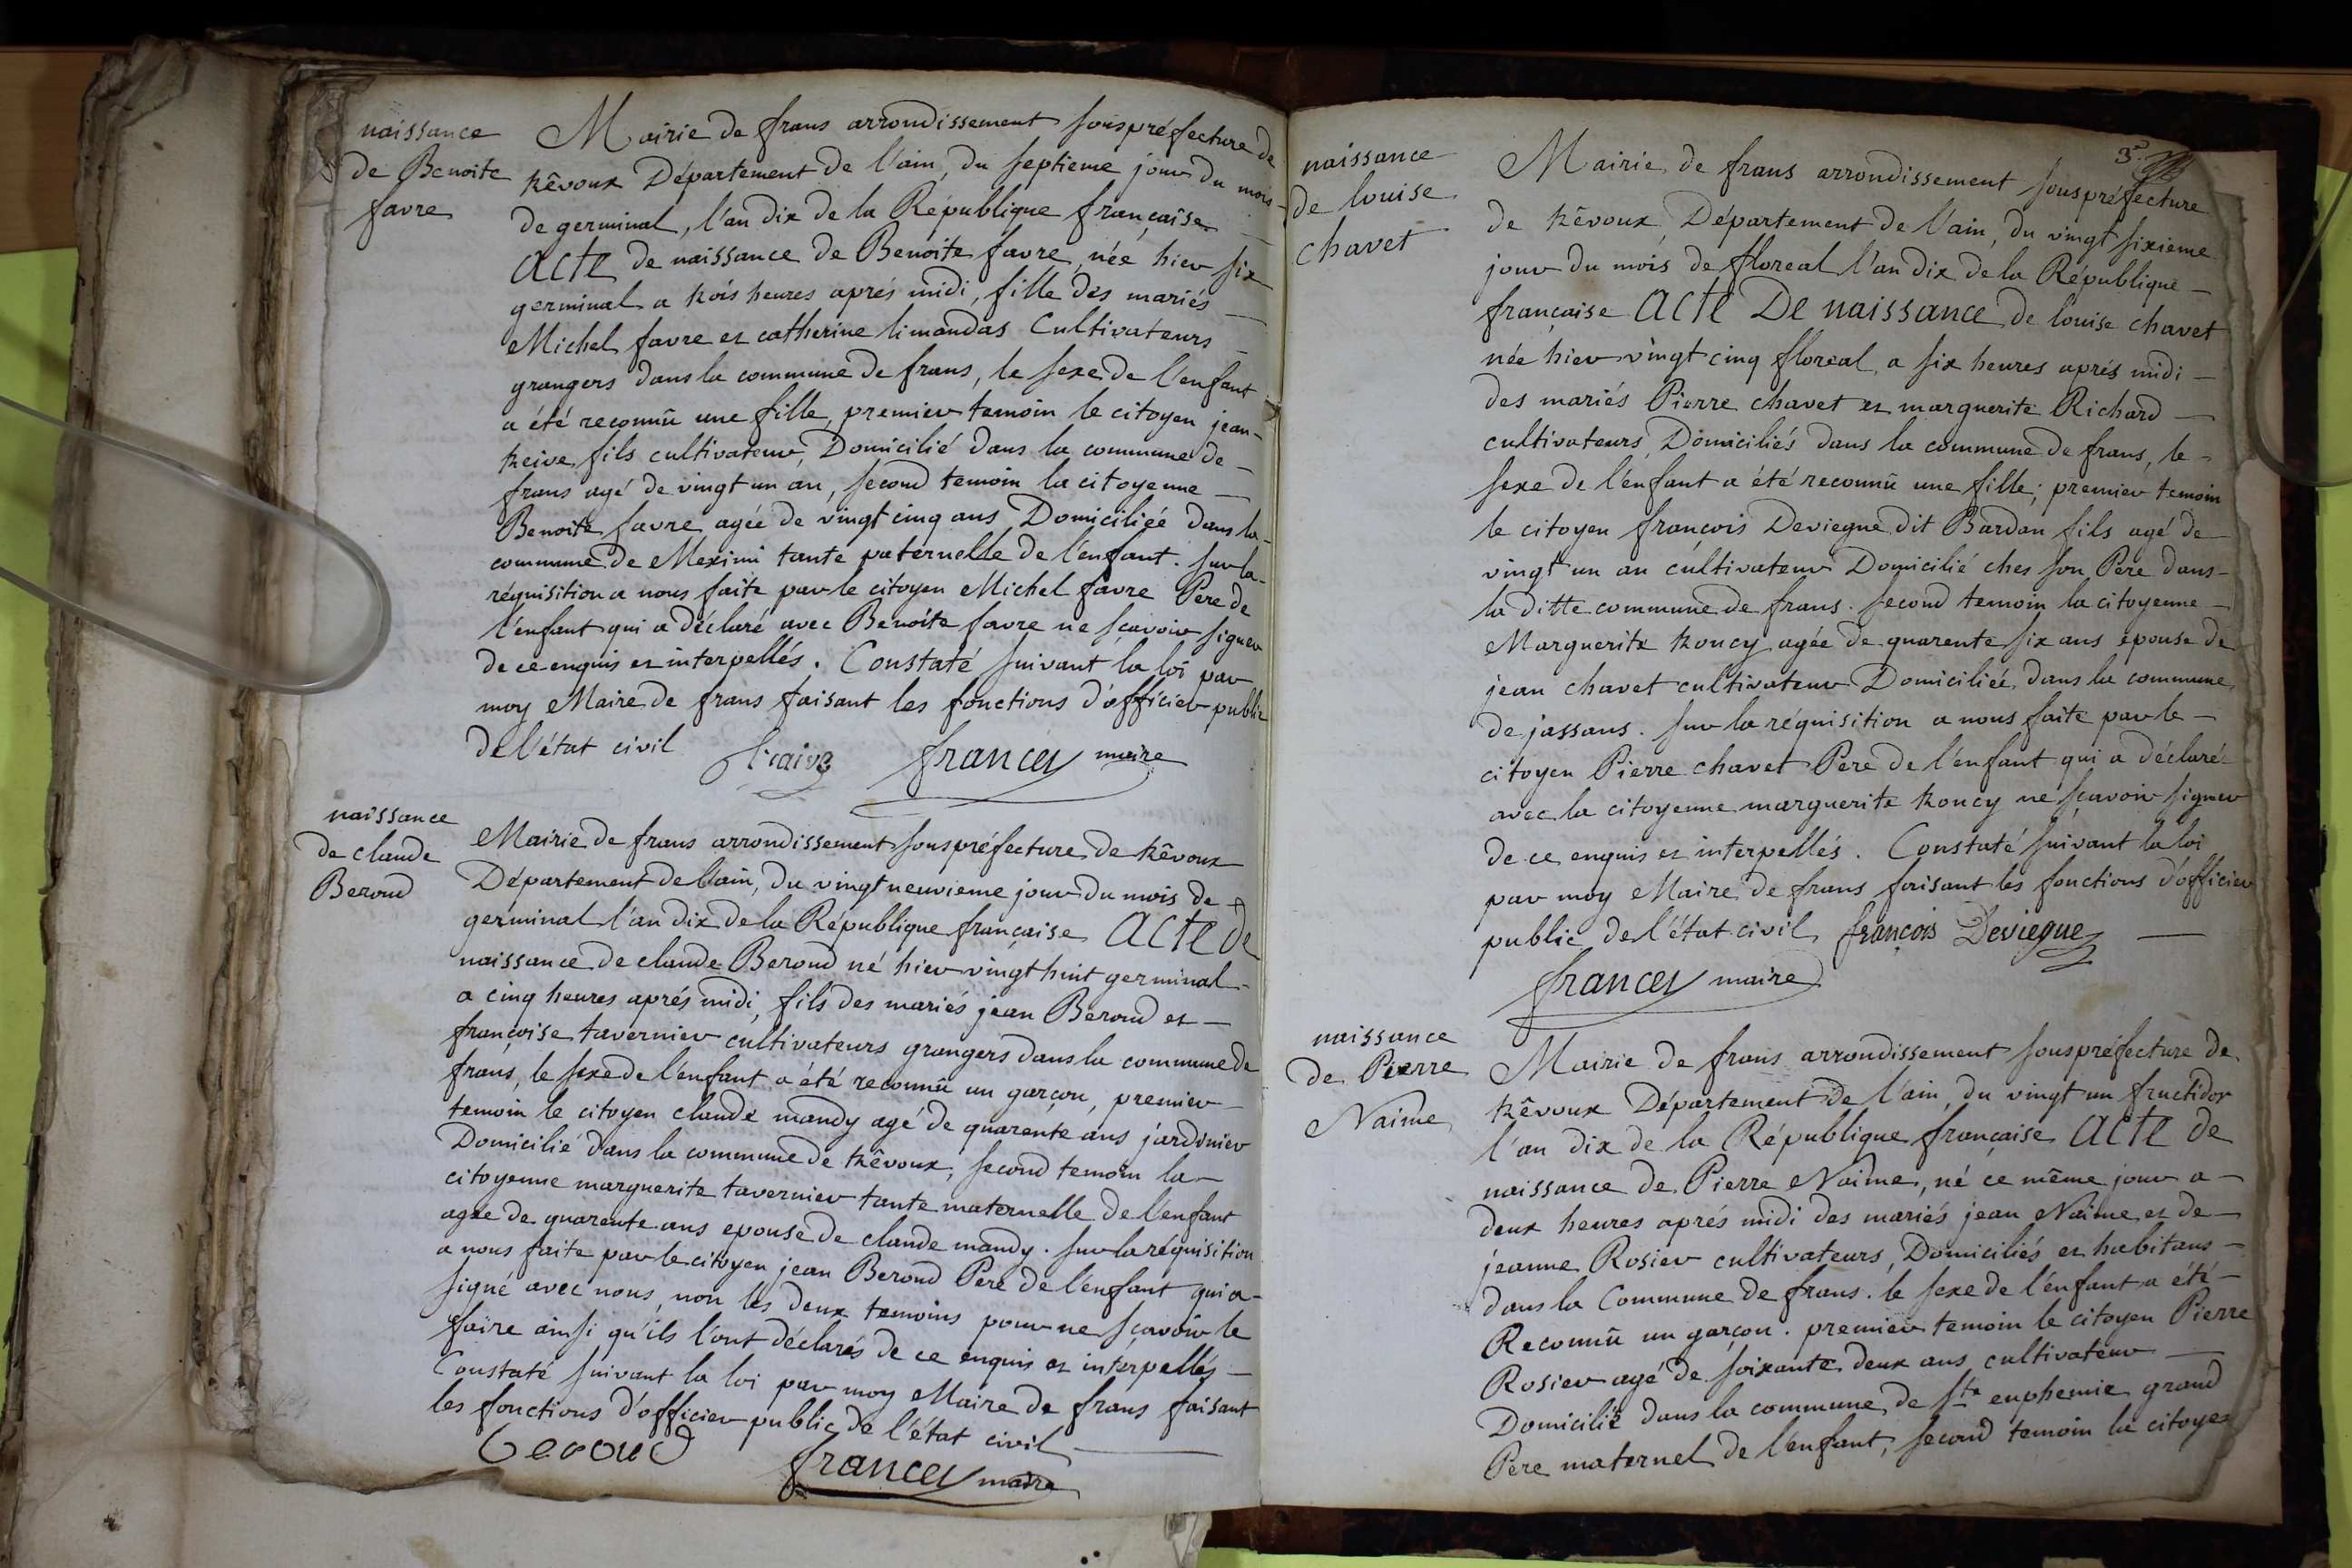 naissance
de Benoite
favre
Mairie de frans arrondissement souspréfecture de
trêvoux Département de l'ain, du septieme jour du mois
de germinal, l'an dix de la République française
Acte de naissance de Benoite favre, née hier six
germinal a trois heures aprés midi, fille des mariés
Michel favre et catherine limandas Cultivateurs
grangers dans la commune de frans, le sexe de l'enfant
a été reconnû une fille, premier temoin le citoyen jean
treive fils cultivateur, Domicilié dans la commune de
frans agé de vingt un an, second temoin la citoyenne
Benoite favre agée de vingt cinq ans Domiciliée dans la
commune de Meximi tante paternelle de l'enfant. sur la
réquisition a nous faite par le citoyen Michel favre Pere de
l'enfant qui a déclaré avec Benoite favre ne sçavoir signer
de ce enquis et interpellés. Constaté suivant la loi par
moy Maire de frans faisant les fonctions d'officier public
de l'état civil
francey maire
naissance
de claude
Beroud
Mairie de frans arrondissement souspréfecture de trêvoux
Département de l'ain, du vingt neuvieme jour du mois de
germinal l'an dix de la République française Acte de
naissance de claude Beroud né hier vingt huit germinal
a cinq heures aprés midi, fils des mariés jean Beroud et
françoise tavernier cultivateurs grangers dans la commune de
frans, le sexe de l'enfant a été reconnû un garçon, premier
temoin le citoyen claude mandy agé de quarente ans jardinier
Domicilié dans la commune de trêvoux, second temoin la
citoyenne marguerite tavernier tante maternelle de l'enfant
agée de quarente ans epouse de claude mandy. sur la réquisition
a nous faite par le citoyen jean Beroud Pere de l'enfant qui a
signé avec nous, non les deux temoins pour ne sçavoir le
faire ainsi qu'ils l'ont déclarés de ce enquis et interpellés
Constaté suivant la loi par moy Maire de frans faisant
les fonctions d'officier public de l'état civil
beroud
francey maire
3
naissance
de louise
chavet
Mairie de frans arrondissement souspréfecture
de trêvoux Département de l'ain, du vingt sixieme
jour du mois de floreal l'an dix de la République
française Acte De naissance de louise chavet
née hier vingt cinq floreal a six heures aprés midi
des mariés Pierre chavet et marguerite Richard
cultivateurs, Domiciliés dans la commune de frans, le
sexe de l'enfant a été reconnû une fille; premier temoin
le citoyen françois Deviegue dit Bardan fils agé de
vingt un an cultivateur Domicilié ches son Pere dans
la ditte commune de frans. second temoin la citoyenne
Marguerite troncy agée de quarente six ans épouse de
jean chavet cultivateur Domiciliée dans la commune
de jassans. sur la réquisition a nous faite par le
citoyen Pierre chavet Pere de l'enfant qui a déclaré
avec la citoyenne marguerite troncy ne sçavoir signer
de ce enquis et interpellés. Constaté suivant la loi
par moy Maire de frans faisant les fonctions d'officier
public de l'état civil françois Deviegue
francey maire
naissance
de Pierre
Naime
Mairie de frans arrondissement souspréfecture de
trêvoux Département de l'ain, du vingt un fructidor
l'an dix de la République française Acte de
naissance de Pierre Naime, né ce même jour a
deux heures aprés midi des mariés jean Naime et de
jeanne Rosier cultivateurs, Domiciliés et habitans
dans la Commune de frans. le sexe de l'enfant a été
Reconnû un garçon. premier temoin le citoyen Pierre
Rosier agé de soixante deux ans cultivateur
Domicilié dans la commune de Ste euphemie grand
Pere maternel de l'enfant, second temoin la citoye